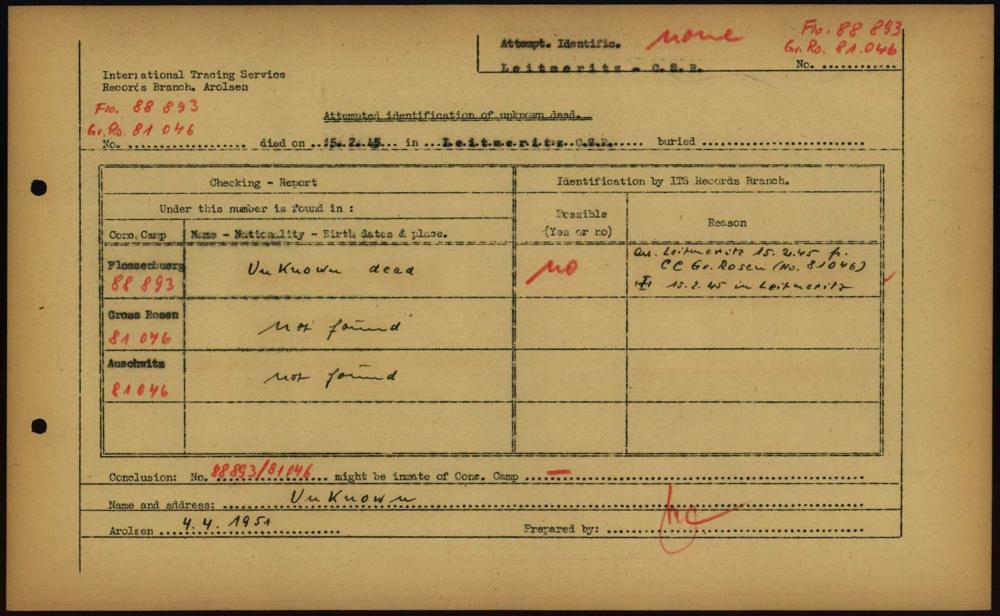 Attempt. Identific. none Flo. 88 893
Gr. Ro. 81.046
Leitmeritz - C.S.R. No. ............
International Tracing Service
Records Branch, Arolsen
Flo. 88 893
Gr. Ro. 81 046
Attempted identification of unknown dead.
No. .................... died on ..15.2.45... in ...Leitmeritz C.S.R...... buried ........................
Checking - Report
Identification by ITS Records Branch.
Under this number is found in :
Possible
(Yes or no)
Reason
Conc. Camp
Name - Nationality - Birth dates & place.
Flossenbuerg
88 893
Unknown dead
no
arr. Leitmeritz 15.2.45 fr.
CC Gr. Rosen (No. 81046)
15.2.45 in Leitmeritz
Gross Rosen
81 046
not found
Auschwitz
81046
not found
Conclusion: No. 88893/81046 ... might be inmate of Conc. Camp ... — ...
Name and address: ........ Unknown ........
Arolsen .... 4.4.1951 ........ Prepared by: ........